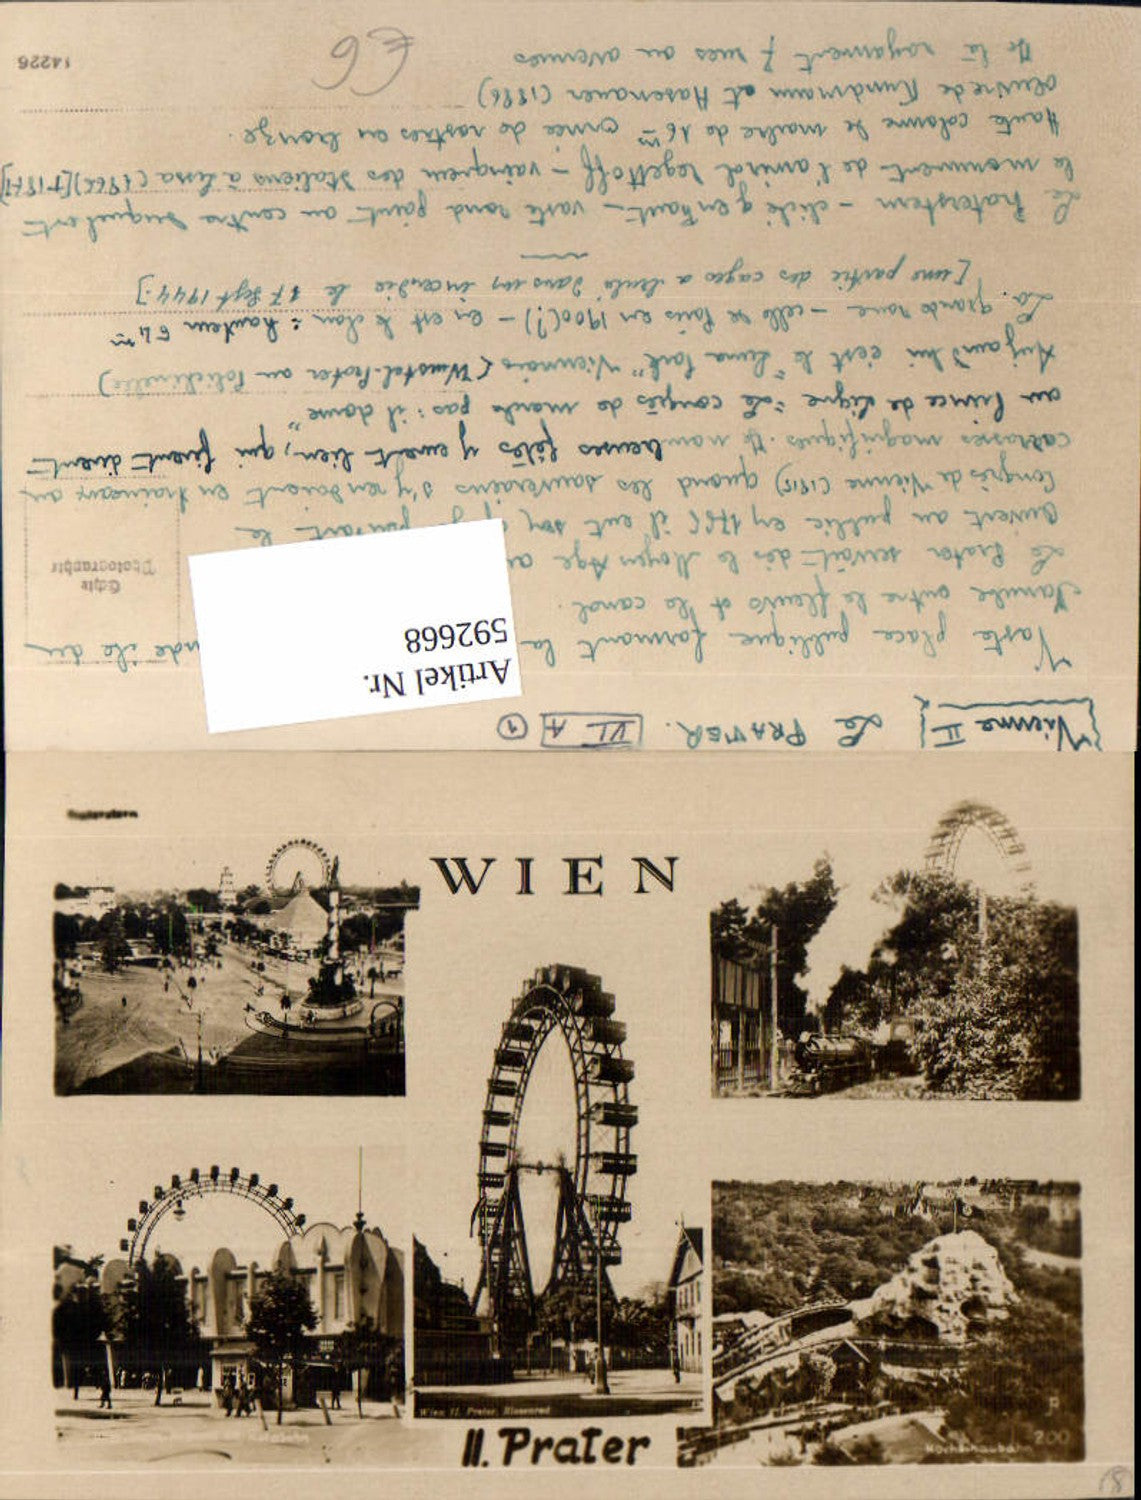 [Vienne II] Le PRATER. VI A 1
Vaste place publique formant la
Danube entre le fleuve et le canal.
Le Prater servait dès le Moyen Age
ouvert au public en 1766 il eut son
Congrès de Vienne (1815) quand les souverains s'y rendaient en traineaux ou
carrosses magnifiques. De nombreuses fêtes y eurent lieu, qui firent dirent
au Prince de Ligne "Le congrès ne marche pas : il danse"
Aujourd'hui c'est le "Luna Park" Viennois (Wurstel-Prater ou Polichinelle)
La grande roue - celle de Paris en 1900(?) - en est le clou : hauteur 64 m
[une partie des cages a brulé dans un incendie le 17 Sept 1944.]
Le Praterstern - cliché q en haut - vaste rond point au centre duquel est
le monument de l'amiral Tegetthoff - vainqueur des Italiens à Lissa (1866) [+1871]
Haute colonne de marbre de 16 m ornée de rostres en bronze.
oeuvre de Kundmann et Hasenauer (1886)
De là rayonnent 7 rues ou avenues
Echte
Photographie
14226
€6
Artikel Nr.
592668
WIEN
Praterstern
Wien II. Prater, Riesenrad
Hochschaubahn
200
II. Prater
8